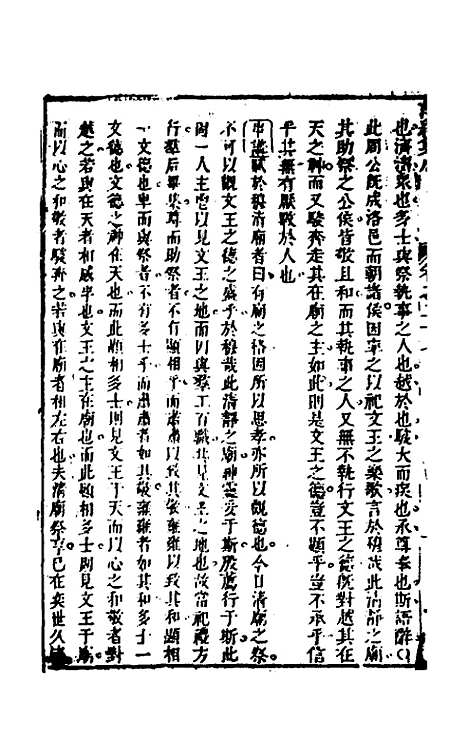 也濟濟眾也多士與祭執事之人也越於也駿大而疾也承尊奉也斯語辭〇
此周公既成洛邑而朝諸侯因率之以祀文王之樂歌言於穆哉此清靜之廟
其助祭之公侯皆敬且和而其執事之人又無不執行文王之德既對越其在
天之神而又駿奔走其在廟之主如此則是文王之德豈不顯乎豈不承乎信
乎其無有厭斁於人也
賦於穆清廟者曰有廟之格固所以思孝亦所以觀德也今日清廟之祭
不可以觀文王之德之盛乎於穆哉此清靜之廟神靈妥于斯薦行于斯此
一人主鬯以見文王之地而四與祭工百職共見文王之地也故當祀禮方
行羣后畢集尊而助祭者不有顯相乎而肅肅以致其敬雝雝以致其和顯相
一文德也卑而與祭者不有多士乎而肅肅者如其敬雝雝者如其和多士一
文德也文德之神在天也而此顯相多士則見文王于天而以心之和敬者對
越之若與在天者相感乎也文王之主在廟也而此顯相多士則見文王于廟
而以心之和敬者駿奔之若與在廟者相左右也夫清廟祭享已在奕世久